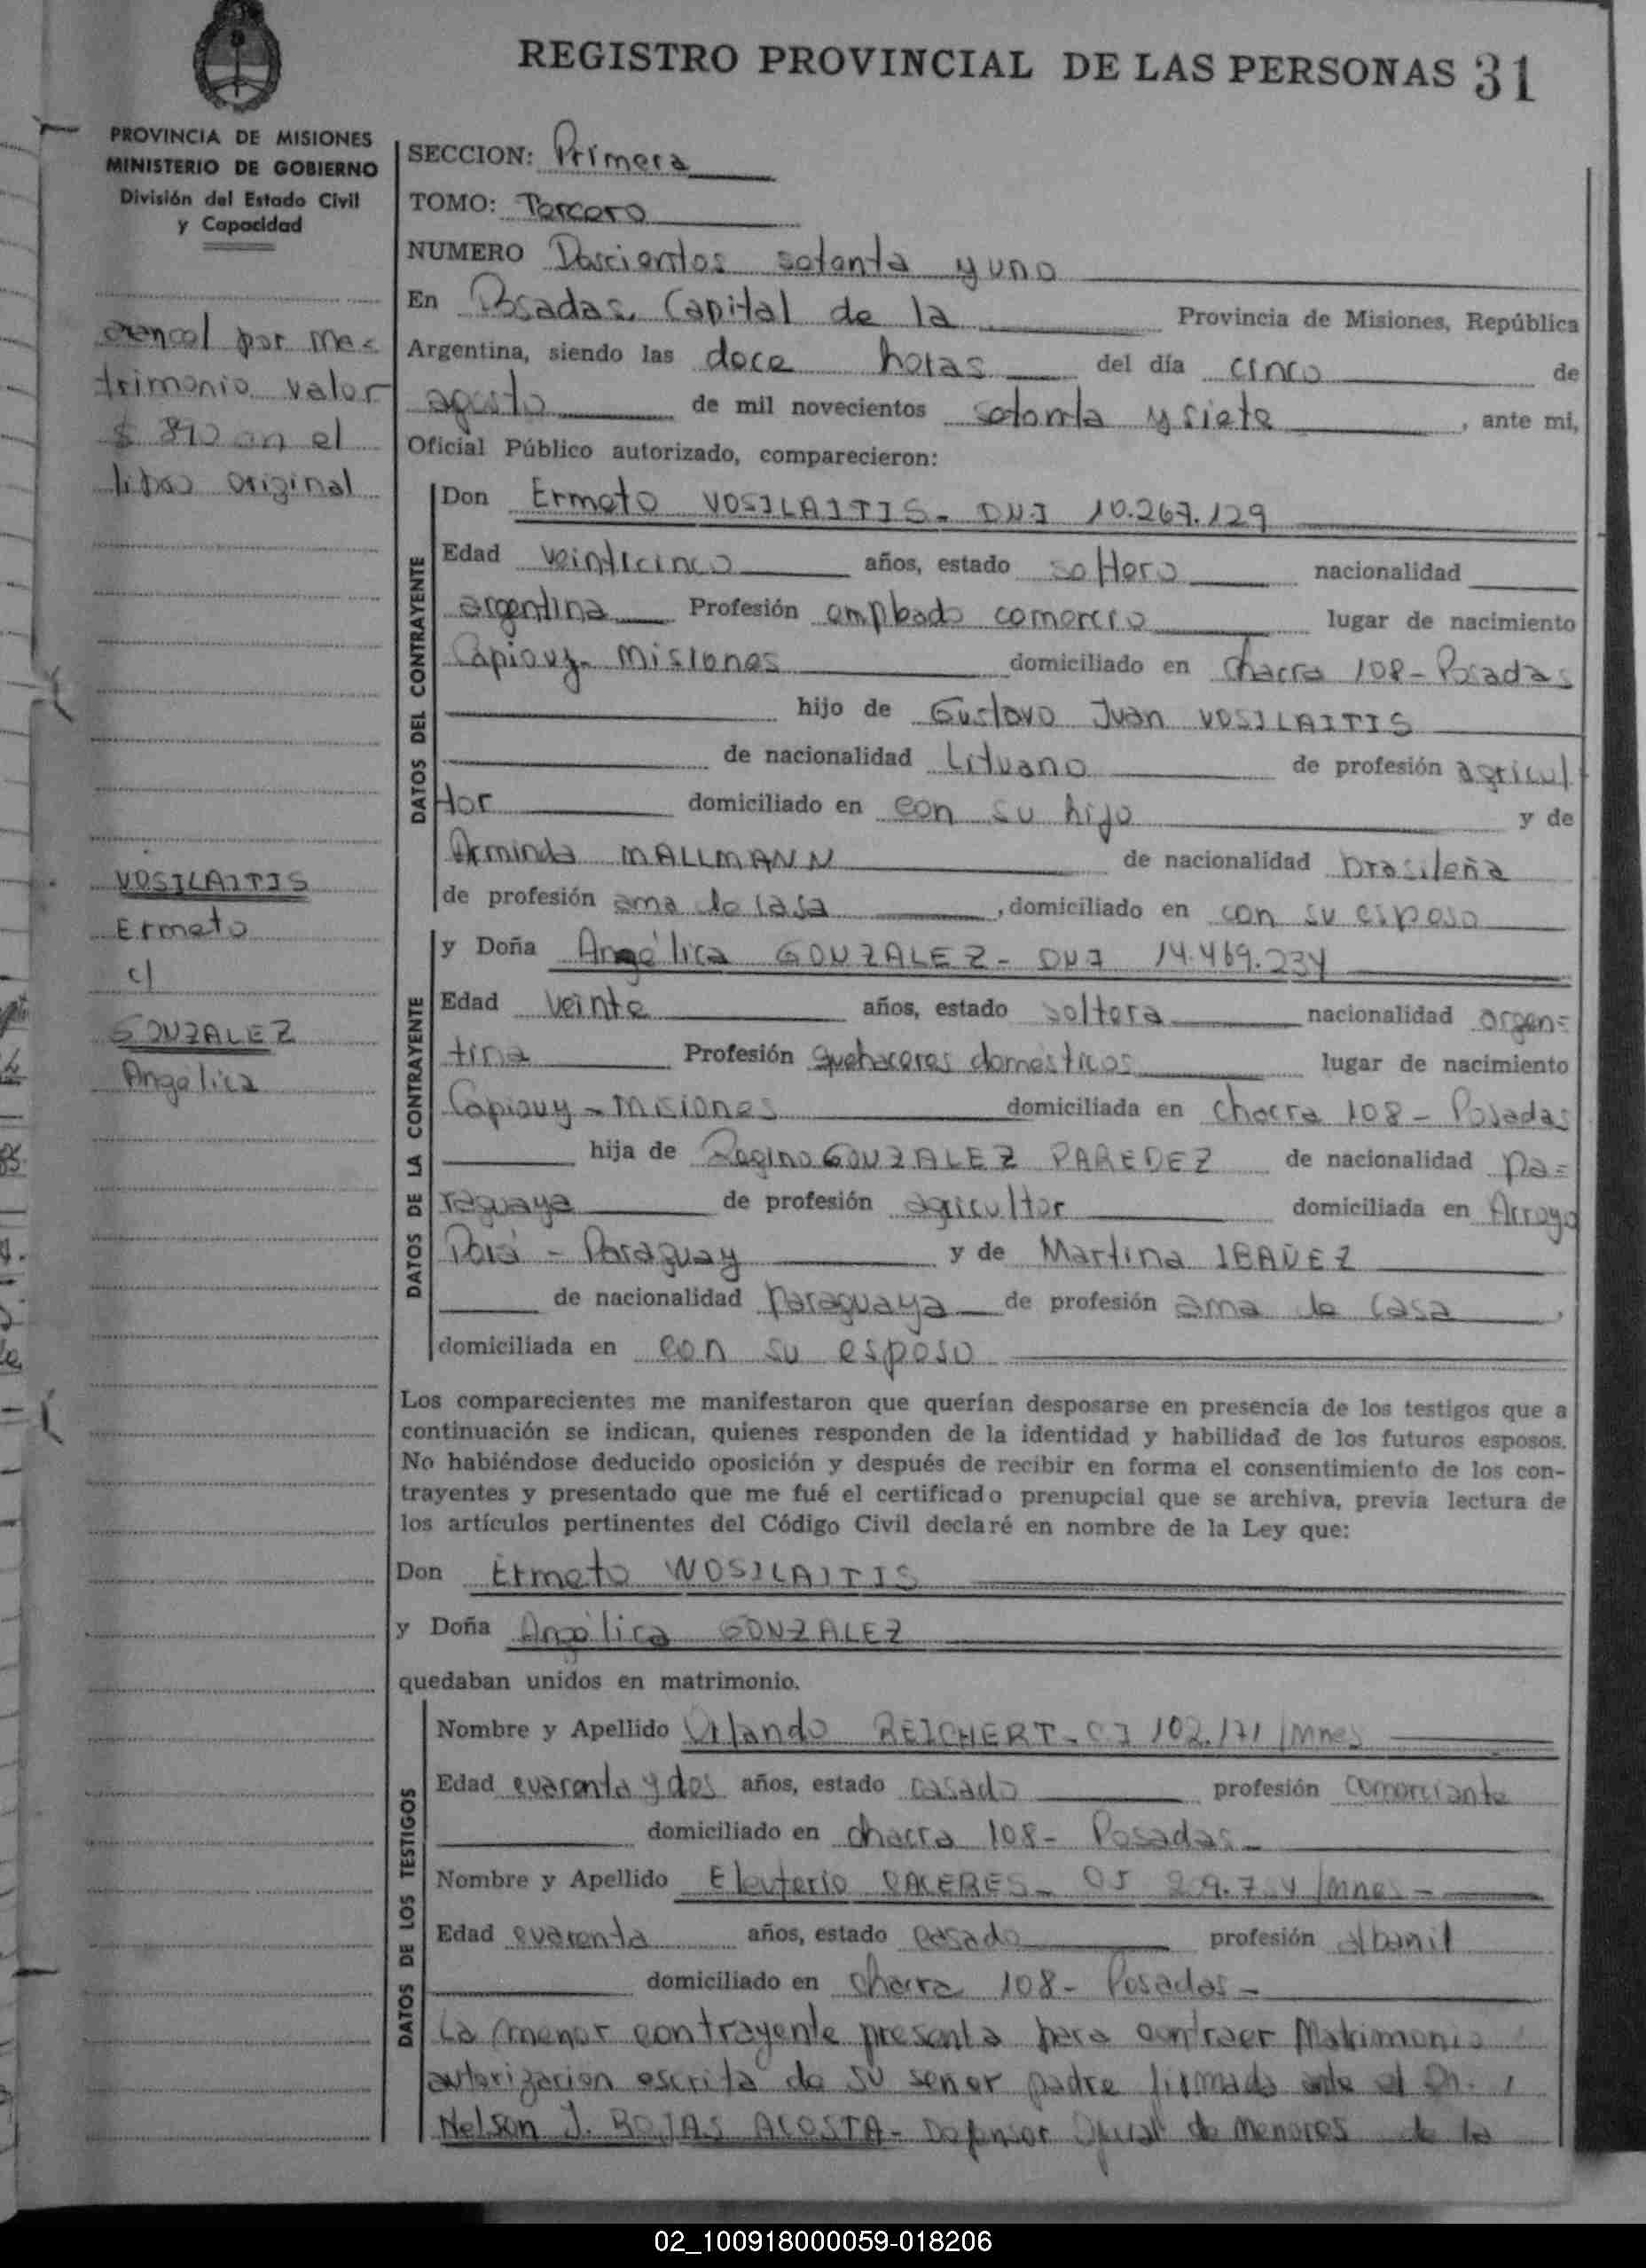 REGISTRO PROVINCIAL DE LAS PERSONAS 31
PROVINCIA DE MISIONES
MINISTERIO DE GOBIERNO
División del Estado Civil
y Capacidad
arancel por ma=
trimonio valor
$ 890 en el
libro original
VOSILAITIS
Ermeto
c/
GONZALEZ
Angélica
SECCION: Primera
TOMO: Tercero
NUMERO Doscientos setenta y uno
En Posadas, Capital de la Provincia de Misiones, República
Argentina, siendo las doce horas del día cinco de
agosto de mil novecientos setenta y siete, ante mi,
Oficial Público autorizado, comparecieron:
DATOS DEL CONTRAYENTE
Don Ermeto VOSILAITIS - DNI 10.267.129
Edad veinticinco años, estado soltero nacionalidad
argentina Profesión empleado comercio lugar de nacimiento
Capiovy - Misiones domiciliado en chacra 108 - Posadas
hijo de Gustavo Juan VOSILAITIS
de nacionalidad Lituano de profesión agricul
tor domiciliado en con su hijo y de
Arminda MALLMANN de nacionalidad brasileña
de profesión ama de casa, domiciliado en con su esposo
DATOS DE LA CONTRAYENTE
y Doña Angélica GONZALEZ - DNI 14.469.234
Edad veinte años, estado soltera nacionalidad argen=
tina Profesión quehaceres domésticos lugar de nacimiento
Capiovy - Misiones domiciliada en chacra 108 - Posadas
hija de Regino GONZALEZ PAREDEZ de nacionalidad pa=
raguaya de profesión agricultor domiciliada en Arroyo
Porá - Paraguay y de Martina IBAÑEZ
de nacionalidad paraguaya de profesión ama de casa,
domiciliada en con su esposo
Los comparecientes me manifestaron que querían desposarse en presencia de los testigos que a
continuación se indican, quienes responden de la identidad y habilidad de los futuros esposos.
No habiéndose deducido oposición y después de recibir en forma el consentimiento de los con-
trayentes y presentado que me fué el certificado prenupcial que se archiva, previa lectura de
los artículos pertinentes del Código Civil declaré en nombre de la Ley que:
Don Ermeto WOSILAITIS
y Doña Angélica GONZALEZ
quedaban unidos en matrimonio.
DATOS DE LOS TESTIGOS
Nombre y Apellido Orlando REICHERT - CI 102.171/Mnes
Edad cuarenta y dos años, estado casado profesión comerciante
domiciliado en chacra 108 - Posadas -
Nombre y Apellido Eleuterio CACERES - CI /Mnes -
Edad cuarenta años, estado casado profesión albanil
domiciliado en chacra 108 - Posadas -
La menor contrayente presenta para contraer Matrimonio
autorizacion escrita de su señor padre firmada ante el Dr.
Nelson J. ROJAS ACOSTA - Defensor Oficial de Menores de la
02_100918000059-018206